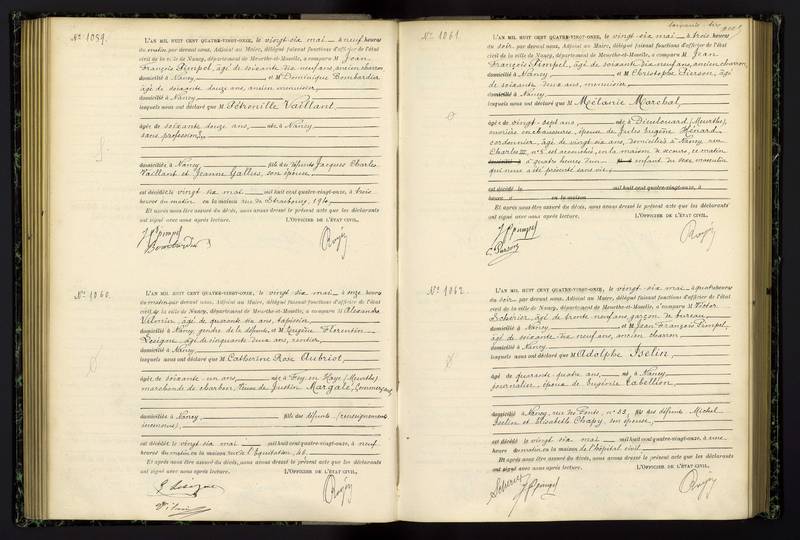 Nº 1059.
L'AN MIL HUIT CENT QUATRE-VINGT-ONZE, le vingt-six mai — à neuf heures
du matin par devant nous, Adjoint au Maire, délégué faisant fonctions d'officier de l'état
civil de la ville de Nancy, département de Meurthe-et-Moselle, a comparu M Jean
François Pimpel, âgé de soixante dix neuf ans, ancien charron
domicilié à Nancy — et M Dominique Bombardier
âgé de soixante douze ans, ancien menuisier
domicilié à Nancy
lesquels nous ont déclaré que M Pétronille Vaillant,
âgée de soixante douze ans, — née à Nancy
sans profession,
domiciliée à Nancy, fille des défunts Jacques Charles
Vaillant et Jeanne Gallus, son épouse
est décédée le vingt six mai — mil huit cent quatre-vingt-onze, à trois
heures du matin en la maison rue de Strasbourg, 194.
Et après nous être assuré du décès, nous avons dressé le présent acte que les déclarants
ont signé avec nous après lecture. L'OFFICIER DE L'ÉTAT CIVIL,
J F Pimpel
Bombardier
Nº 1060.
L'AN MIL HUIT CENT QUATRE-VINGT-ONZE, le vingt-six mai — à onze heures
du matin par devant nous, Adjoint au Maire, délégué faisant fonctions d'officier de l'état
civil de la ville de Nancy, département de Meurthe-et-Moselle, a comparu M Alexandre
âgé de quarante six ans, tapissier
domicilié à Nancy, gendre de la défunte, et M Eugène Florentin
âgé de cinquante deux ans, rentier
domicilié à Nancy
lesquels nous ont déclaré que M Catherine Rose Aubriot,
âgée de soixante un ans — née à Foy-en-Haye (Meurthe)
marchande de charbon, veuve de Justin Margale,
domiciliée à Nancy, fille des défunts (renseignements
inconnus)
est décédée le vingt six mai — mil huit cent quatre-vingt-onze, à neuf
heures du matin en la maison rue de l'Equitation, 46.
Et après nous être assuré du décès, nous avons dressé le présent acte que les déclarants
ont signé avec nous après lecture. L'OFFICIER DE L'ÉTAT CIVIL,
Nº 1061.
L'AN MIL HUIT CENT QUATRE-VINGT-ONZE, le vingt-six mai — à trois heures
du soir, par devant nous, Adjoint au Maire, délégué faisant fonctions d'officier de l'état
civil de la ville de Nancy, département de Meurthe-et-Moselle, a comparu M Jean
François Pimpel, âgé de soixante dix neuf ans, ancien charron,
domicilié à Nancy — et M Christophe Pierson, âgé
de soixante dix ans, menuisier
domicilié à Nancy
lesquels nous ont déclaré que M Mélanie Marchal,
âgée de vingt-sept ans, — née à Dieulouard (Meurthe),
ouvrière en chaussures, épouse de Jules Eugène Hénard
cordonnier, âgé de vingt six ans, domiciliés à Nancy rue
Charles III, nº 8 est accouchée, en la maison de secours, ce matin
à quatre heures d'un enfant du sexe masculin
qui nous a été présenté sans vie.
est décédé le mil huit cent quatre-vingt-onze, à
heures d en la maison
Et après nous être assuré du décès, nous avons dressé le présent acte que les déclarants
ont signé avec nous après lecture. L'OFFICIER DE L'ÉTAT CIVIL,
J F Pimpel
C. Pierson
Nº 1062.
L'AN MIL HUIT CENT QUATRE-VINGT-ONZE, le vingt-six mai — à quatre heures
du soir, par devant nous, Adjoint au Maire, délégué faisant fonctions d'officier de l'état
civil de la ville de Nancy, département de Meurthe-et-Moselle, a comparu M Victor
âgé de trente neuf ans, garçon de bureau,
domicilié à Nancy — et M Jean François Pimpel,
âgé de soixante dix neuf ans, ancien charron
domicilié à Nancy
lesquels nous ont déclaré que M Adolphe Iselin,
âgé de quarante quatre ans, — né à Nancy,
journalier, époux de Eugénie Cabellion,
domicilié à Nancy, rue des Ponts, nº 33, fils des défunts Michel
Iselin et Elisabeth Chapy, son épouse,
est décédé le vingt six mai — mil huit cent quatre-vingt-onze, à une
heure du matin en la maison de l'hôpital civil
Et après nous être assuré du décès, nous avons dressé le présent acte que les déclarants
ont signé avec nous après lecture. L'OFFICIER DE L'ÉTAT CIVIL,
J F Pimpel